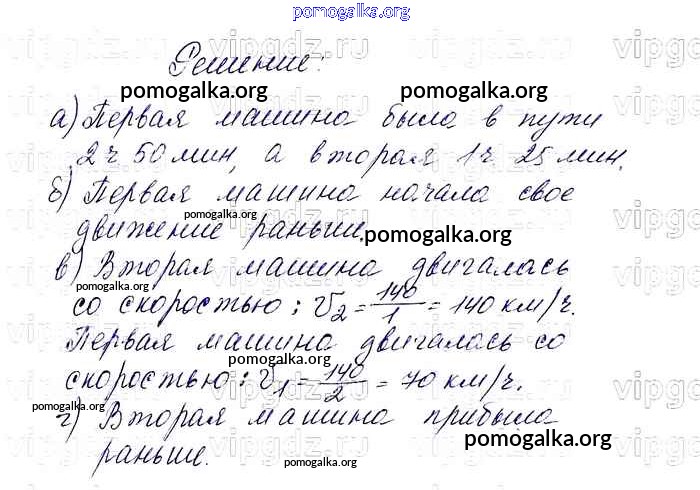 pomogalka.org
Решение:
pomogalka.org pomogalka.org
а) Первая машина была в пути
2 ч 50 мин, а вторая 1 ч 25 мин.
б) Первая машина начала свое
pomogalka.org
движение раньше.
pomogalka.org
в) Вторая машина двигалась
pomogalka.org
со скоростью: V₂ = 140/1 = 140 км/ч.
Первая машина двигалась со
pomogalka.org
скоростью: V₁ = 140/2 = 70 км/ч.
pomogalka.org
г) Вторая машина прибыла
pomogalka.org
раньше.
pomogalka.org